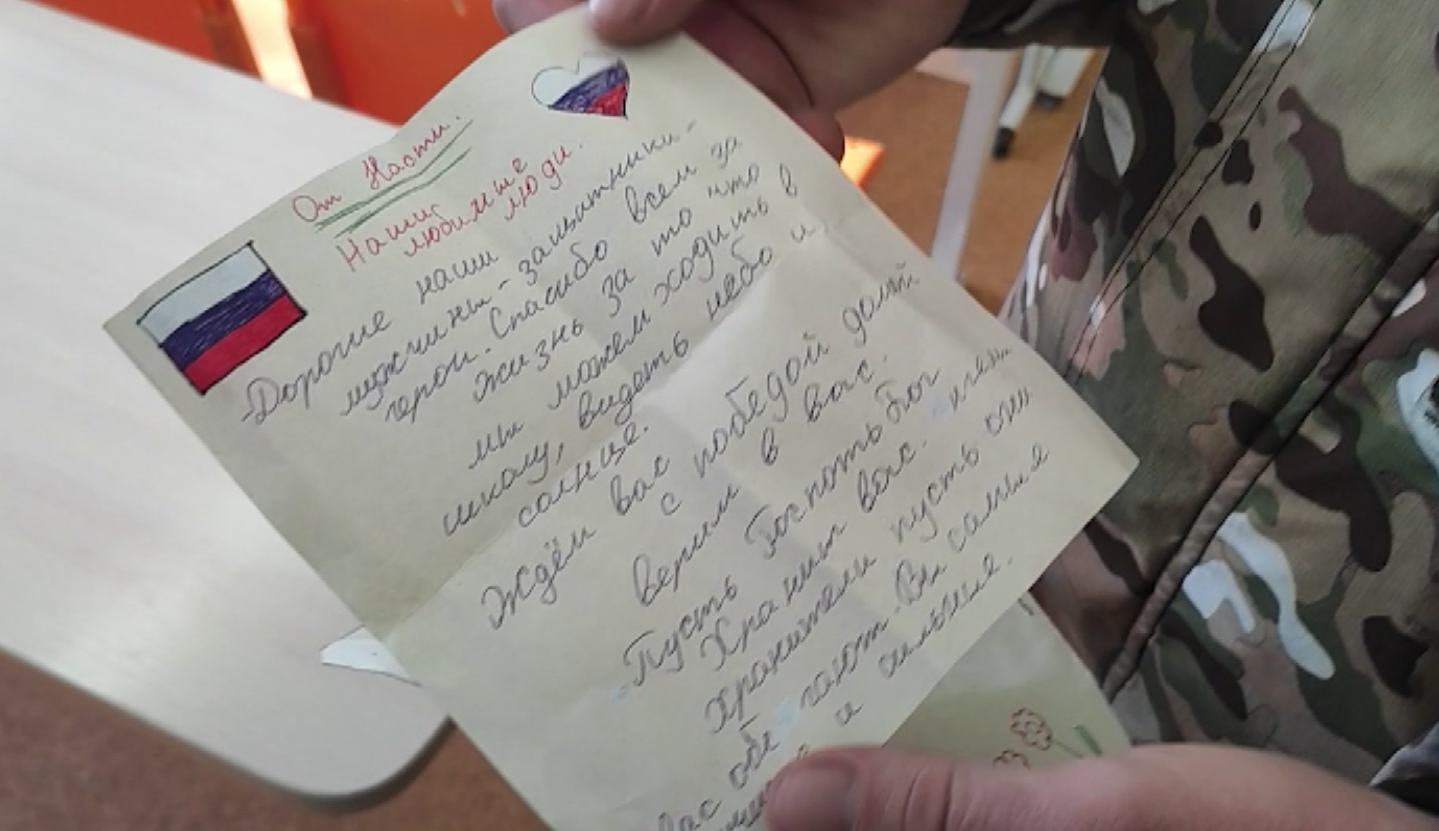 От Насти.
Наши
любимые
люди.
Дорогие наши защитники-
мужчины-
герои. Спасибо всем за
жизнь за то что
мы можем ходить в
школу, видеть небо и
солнце.
Ждём вас с победой домой
с
верим в вас.
Пусть Господь Бог
Хранит вас.
хранители пусть они
вас обе гают. Вы самые
и сильные.